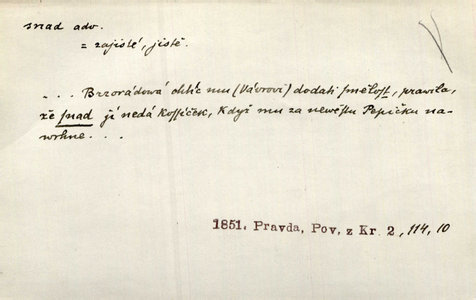 snad adv.
= zajisté, jistě.
. . . Brzorádová chtíc mu (Vávrovi) dodati smělost, pravila,
že snad jí nedá košíček, když mu za newěstu Pepičku na-
wrhne. . .
1851. Pravda, Pov. z Kr. 2, 114, 10